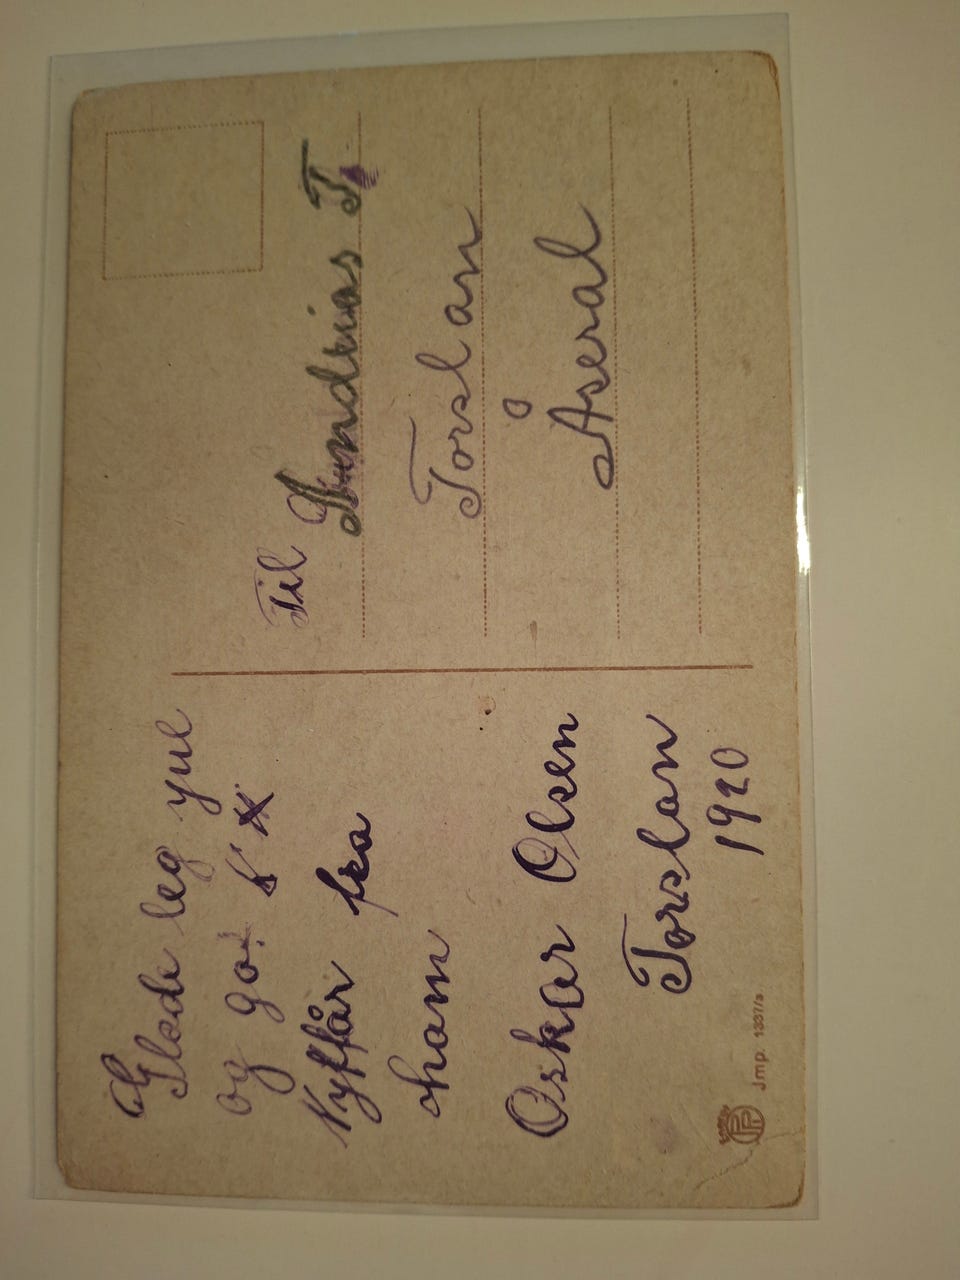 Glade leg yul
og go!
Nyffår fra
ham
Oskar Olsen
Torslan
1920
Jmp. 1337/a
Til Andrias T
Torslan
Åseral